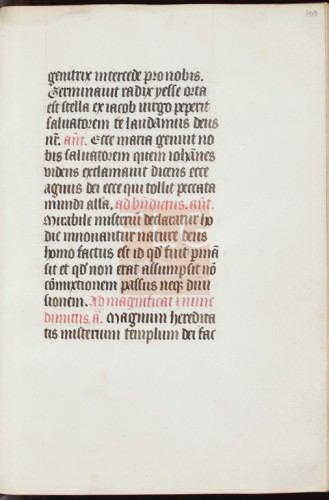 genitrix intercede pro nobis.
Germinavit radix yesse orta
est stella ex iacob virgo peperit
salvatorem te laudamus deus
nr̄. an̄t. Ecce maria genuit no
bis salvatorem quem ioh̄anes
videns exclamavit dicens ecce
agnus dei ecce qui tollit peccata
mundi alla. ad bn̄dictus. an̄t.
Mirabile misteriū declaratur ho
die innovantur nature deus
homo factus est id qd̄ fuit pmā
sit et qd̄ non erat assumpsit nō
cōmixtionem passus neq; divi
sionem. Ad magnificat t nunc
dimittis. ā. Magnum heredita
tis misterium templum dei fac